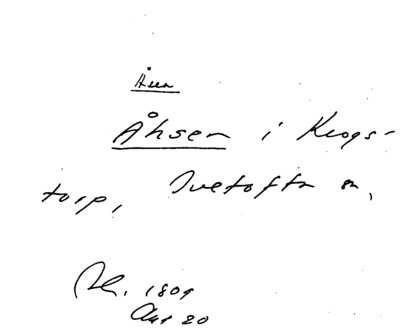 Åsen
Åhsen i Krogs-
torp, Ivetofta sn,
Rl. 1809
Avs 20